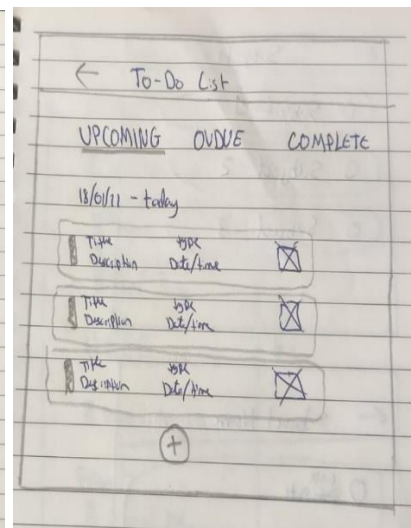 ← To-Do List
UPCOMING OVDUE COMPLETE
18/01/11 - today
Title type
Description Date/time
Title type
Description Date/time
Title type
Description Date/time
+